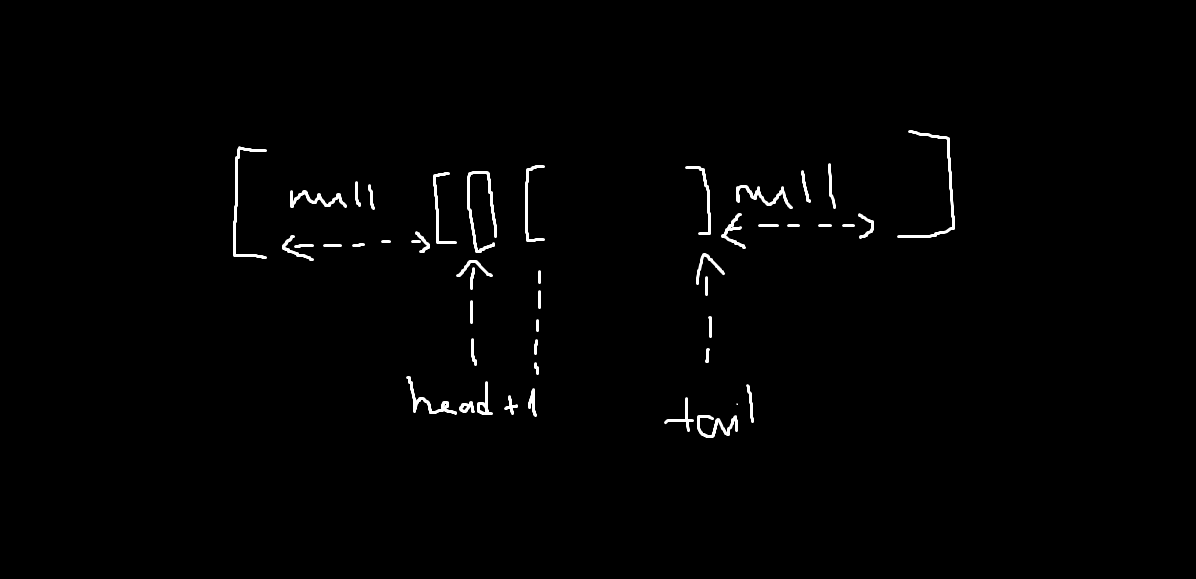 null null
head+1
tail